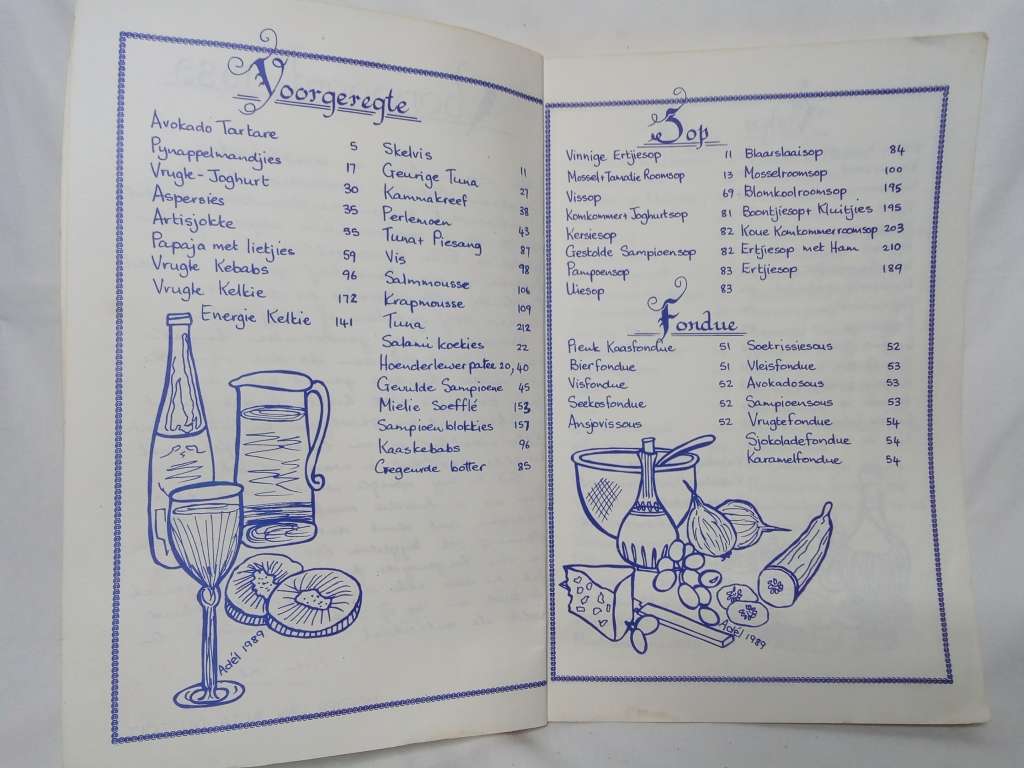 Voorgeregte
Avokado Tartare 5
Pynappelmandjies 17
Vrugte-Joghurt 30
Aspersies 35
Artisjokke 55
Papaja met lietjies 59
Vrugte Kebabs 96
Vrugte Kelkie 172
Energie Kelkie 141
Skelvis 11
Geurige Tuna 27
Kammakreef 38
Perlemoen 43
Tuna+ Piesang 87
Vis 98
Salmmousse 106
Krapmousse 109
Tuna 212
Salami koekies 22
Hoenderlewer patee 20, 40
Gevulde Sampioene 45
Mielie Soefflé 153
Sampioen blokkies 157
Kaaskebabs 96
Gegeurde botter 85
Adél 1989
Sop
Vinnige Ertjiesop 11
Mossel+Tamatie Roomsop 13
Vissop 69
Komkommer+ Joghurtsop 81
Kersiesop 82
Gestolde Sampioensop 82
Pampoensop 83
Uiesop 83
Blaarslaaisop 84
Mosselroomsop 100
Blomkoolroomsop 195
Boontjiesop+ Kluitjies 195
Koue Komkommerroomsop 203
Ertjiesop met Ham 210
Ertjiesop 189
Fondue
Pienk Kaasfondue 51
Bierfondue 51
Visfondue 52
Seekosfondue 52
Ansjovissous 52
Soetrissiesous 52
Vleisfondue 53
Avokadosous 53
Sampioensous 53
Vrugtefondue 54
Sjokoladefondue 54
Karamelfondue 54
Adél 1989